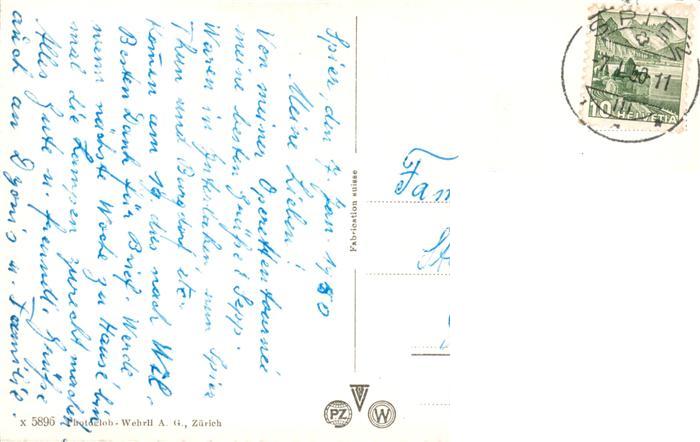 Spiez, den 7. Jan. 1950
Meine Lieben!
Von meiner Operettentournee
meine besten Grüße! Sepp.
Waren in Interlaken, nun Spiez
Thun und Burgdorf etc.
Komen am 10. des nach Wil.
Besten Dank für Brief. Werde
wenn nächste Woche zu Hause bin
mal die Lampen zurecht machen
Alles Gute u. freundl. Grüße
auch an u. Familie.
Fam
St
Fabrication suisse
X 5896 Photoglob-Wehrli A. G., Zürich
PZ
W
SPIEZ
10 HELVETIA